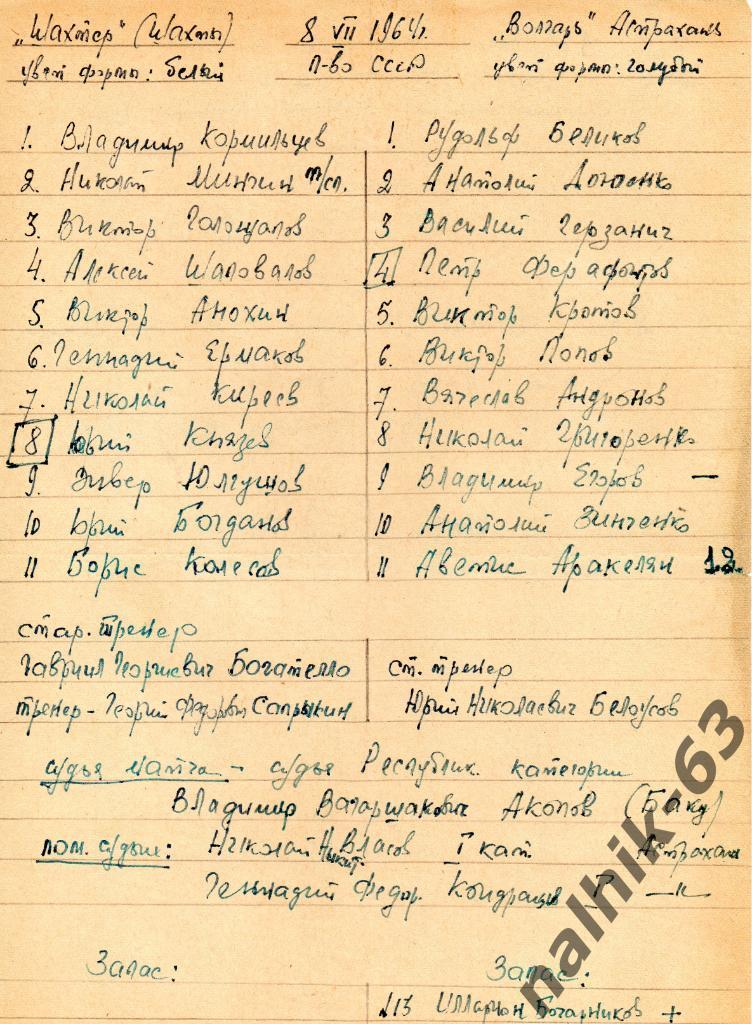 „Шахтер" (Шахты)
цвет формы: белый
8 VII 1964г.
П-во СССР
„Волгарь" Астрахань
цвет формы: голубой
1. Владимир Кормильцев
2. Николай Минчин м/сп.
3. Виктор Голощапов
4. Алексей Шаповалов
5. Виктор Анохин
6. Геннадий Ермаков
7. Николай Киреев
8 Юрий Князев
9. Энвер Юлгушов
10 Юрий Богданов
11 Борис Колесов
1. Рудольф Беликов
2 Анатолий
3 Василий Герзанич
4 Петр Ферафонтов
5. Виктор Кротов
6. Виктор Попов
7. Вячеслав Андронов
8 Николай Григоренко
9 Владимир Егоров —
10 Анатолий Зинченко
11 Аветис Аракелян 12
стар. тренер
Гавриил Георгиевич Богателло
тренер - Георгий Федоров Сапрыкин
ст. тренер
Юрий Николаевич Белоусов
судья матча - судья Республик. категории
Владимир Вагаршакович Акопов (Баку)
пом. судьи: Николай Никит. Власов I кат. Астрахань
Геннадий Федор. Кондрашов I —"—
Запас:
Запас:
13 Илларион Богарников +
nalnik-63